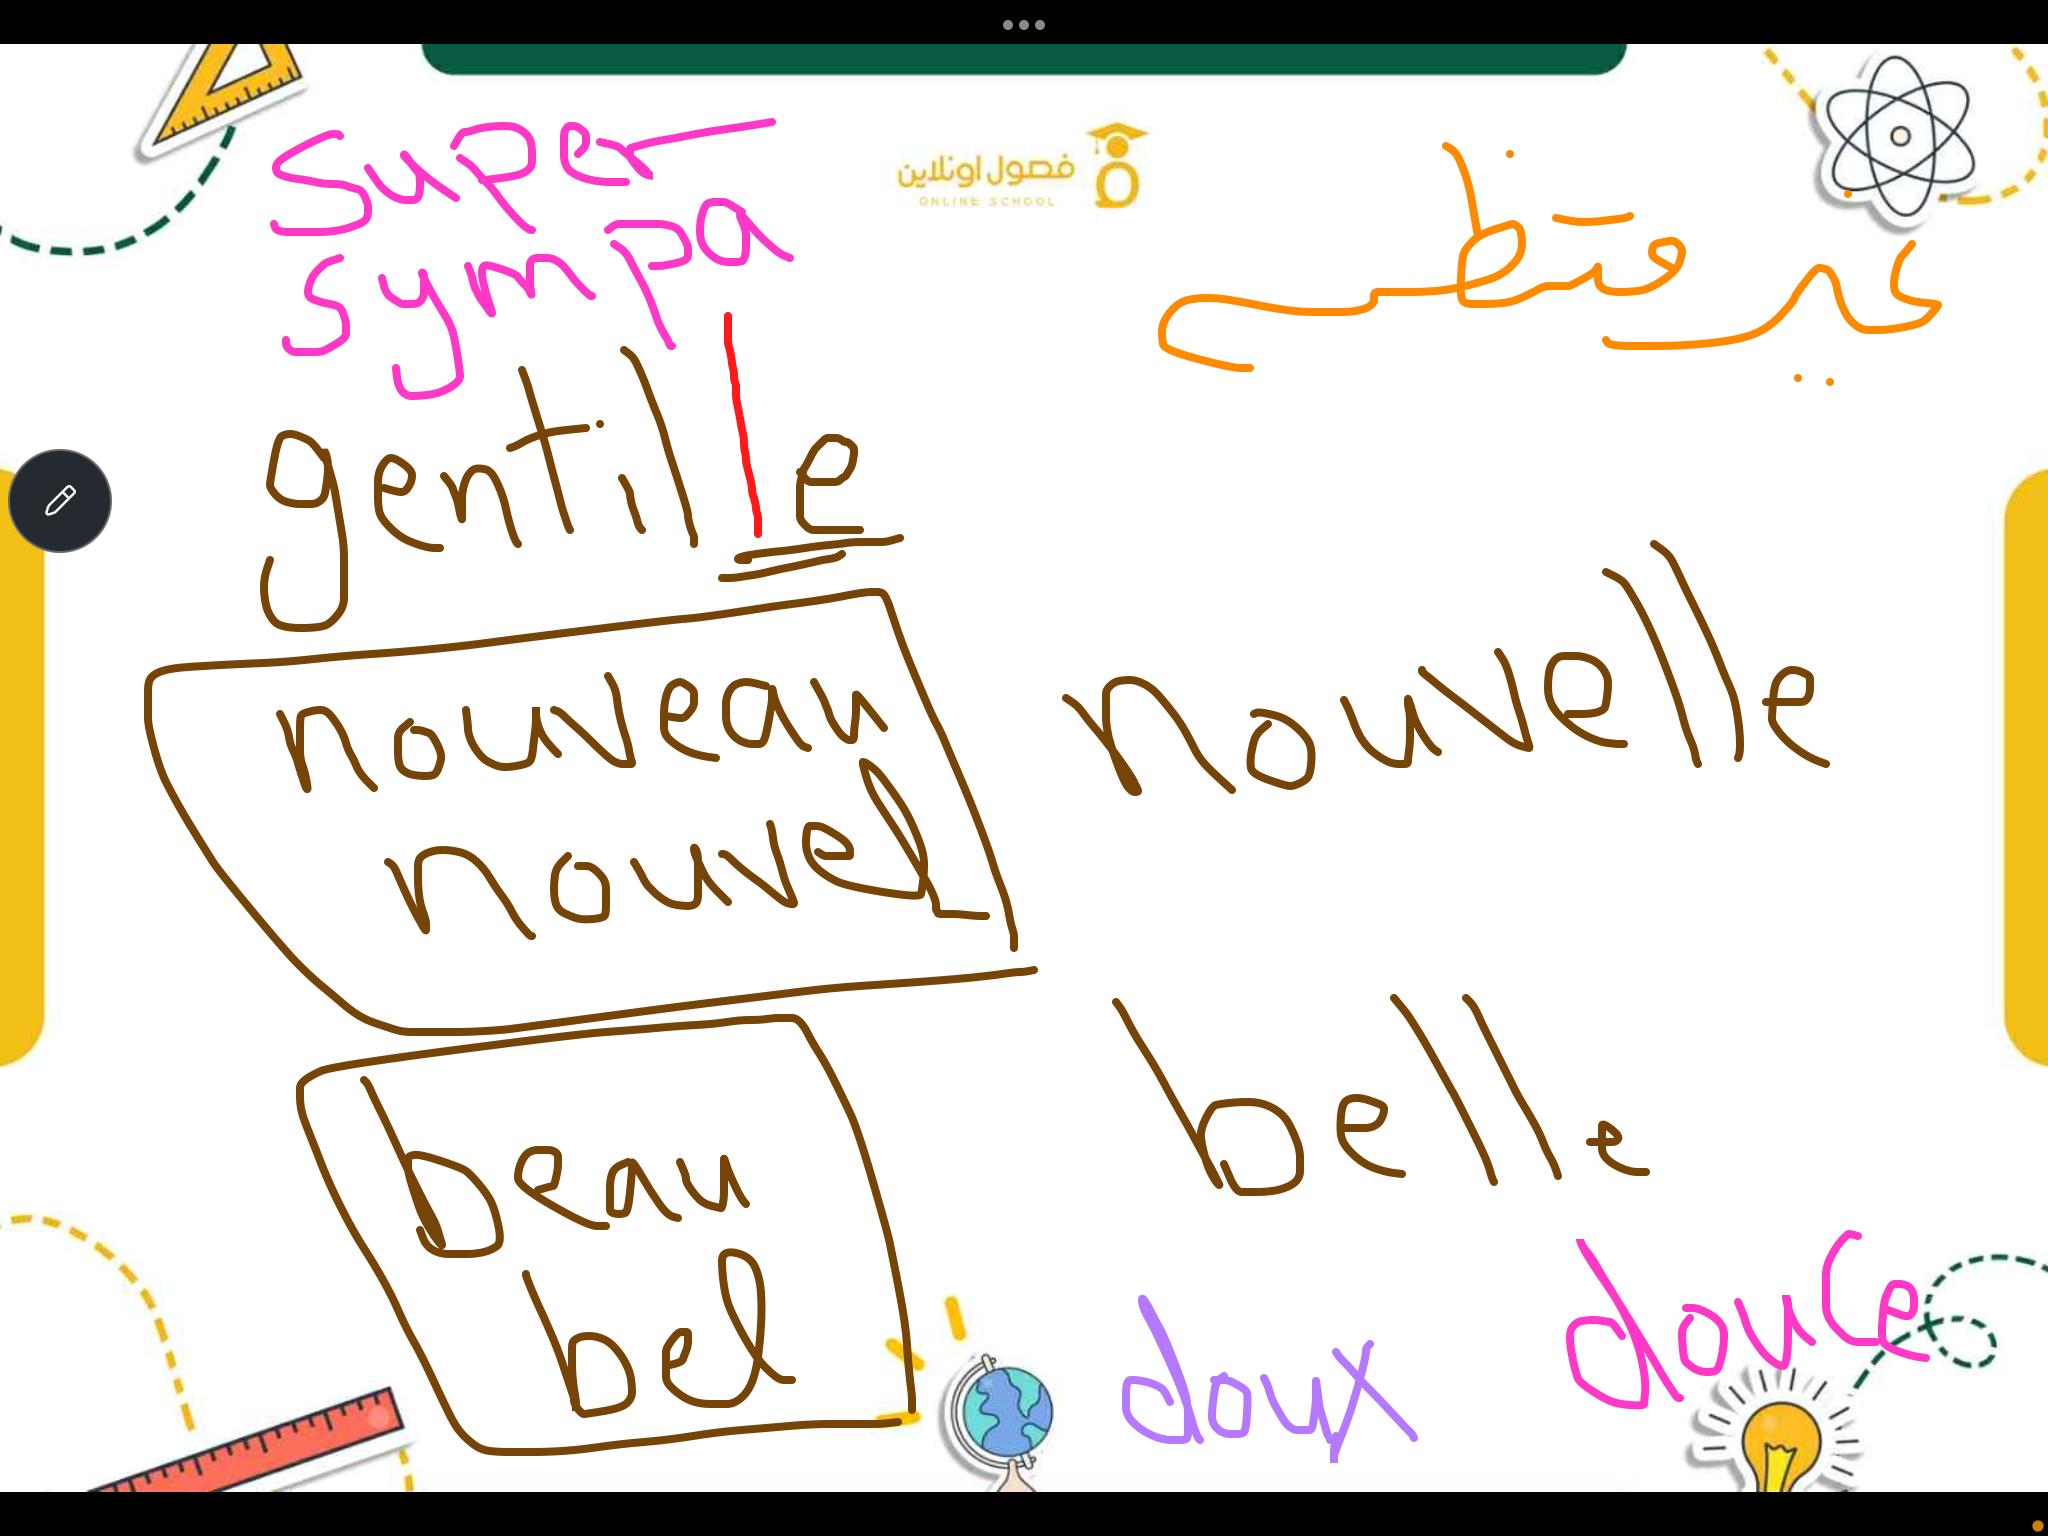 super
sympa
فصول اونلاين
ONLINE SCHOOL
غير منتظم
gentille
nouveau
nouvelle
nouvel
beau
belle
bel
doux
douce